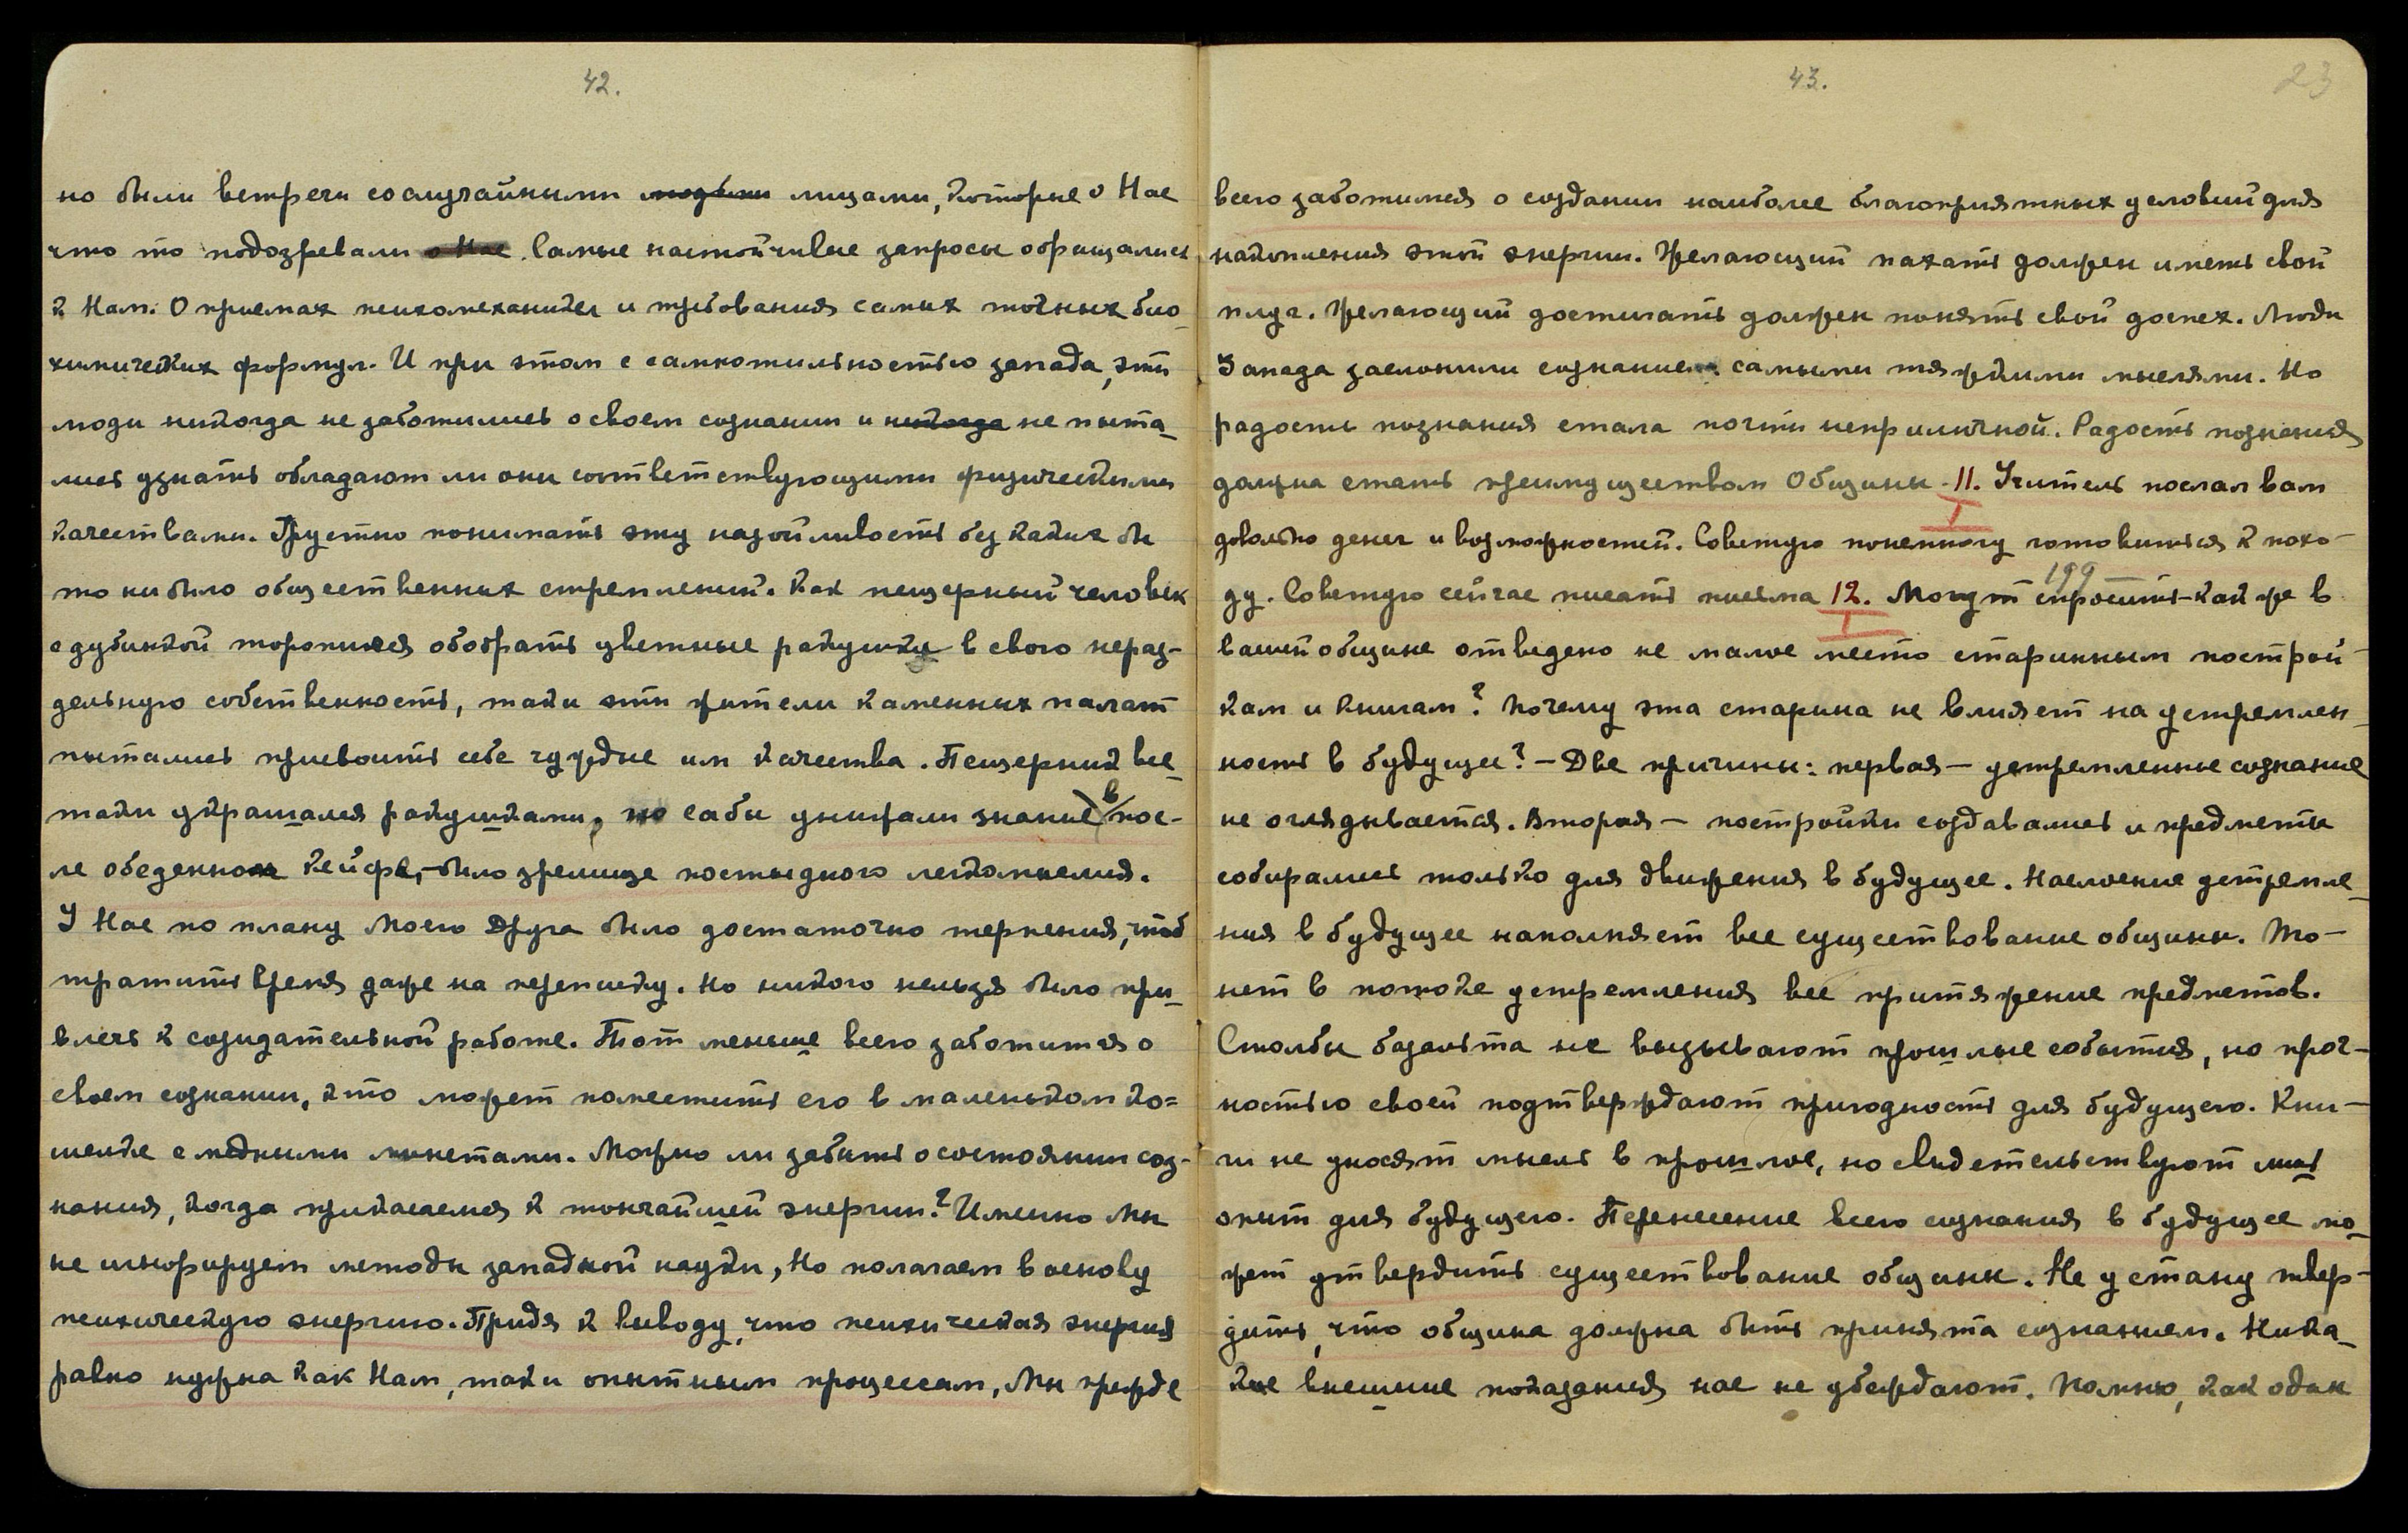 42.
но были встречи со случайными людьми лицами, которые о Нас
что то подозревали о Нас. Самые настойчивые запросы обращались
к Нам. О приемах психомеханики и требования самых точных био-
химических формул. И при этом с самкотильностью запада, эти
люди никогда не заботились о своем сознании и никогда не пыта-
лись узнать обладают ли они соответствующими физическими
качествами. Грустно понимать эту назойливость без каких бы
то ни было общественных стремлений. Как пещерный человек
с дубинкой торопился обобрать цветные ракушки в свою нераз-
дельную собственность, так и эти жители каменных палат
пытались присвоить себе чуждые им качества. Пещерник все-
таки украшался ракушками, но сабы унижали знание в пос-
ле обеденном кейфе,- было зрелище постыдного легкомыслия.
У Нас по плану Моего Друга было достаточно терпения, чтоб
тратить время даже на переписку. Но никого нельзя было при-
влечь к созидательной работе. Тот меньше всего заботится о
своем сознании, кто может поместить его в маленьком ко=
шельке с медными монетами. Можно ли забыть о состоянии соз-
нания, когда прикасаемся к тончайшей энергии? Именно Мы
не игнорируем методы западной науки, Но полагаем в основу
психическую энергию. Придя к выводу, что психическая энергия
равно нужна как Нам, так и опытным процессам, Мы прежде
43.
23
всего заботимся о создании наиболее благоприятных условий для
накопления этой энергии. Желающий пахать должен иметь свой
плуг. Желающий достигать должен понять свой доспех. Люди
Запада заслонили сознание самыми тяжкими мыслями. Но
радость познания стала почти неприличной. Радость познания
должна стать преимуществом Общины. 11. Учитель послал вам
довольно денег и возможностей. Советую понемногу готовиться к похо-
ду. Советую сейчас писать письма 12. Могут спросить - как же в
199
вашей общине отведено не малое место старинным построй-
кам и книгам? Почему эта старина не влияет на устремлен-
ность в будущее? - Две причины: первая - устремленные сознание
не оглядывается. Вторая - постройки создавались и предметы
собирались только для движения в будущее. Наслоение устремле-
ния в будущее наполняет все существование общины. То-
нет в потоке устремления все притяжение предметов.
Столбы базальта не вызывают прошлые события, но проч-
ностью своей подтверждают пригодность для будущего. Кни-
ги не уносят мысль в прошлое, но свидетельствуют лишь
опыт для будущего. Перенесение всего сознания в будущее мо-
жет утвердить существование общины. Не устану твер-
дить, что община должна быть принята сознанием. Ника-
кие внешние показания нас не убеждают. Помню, как один